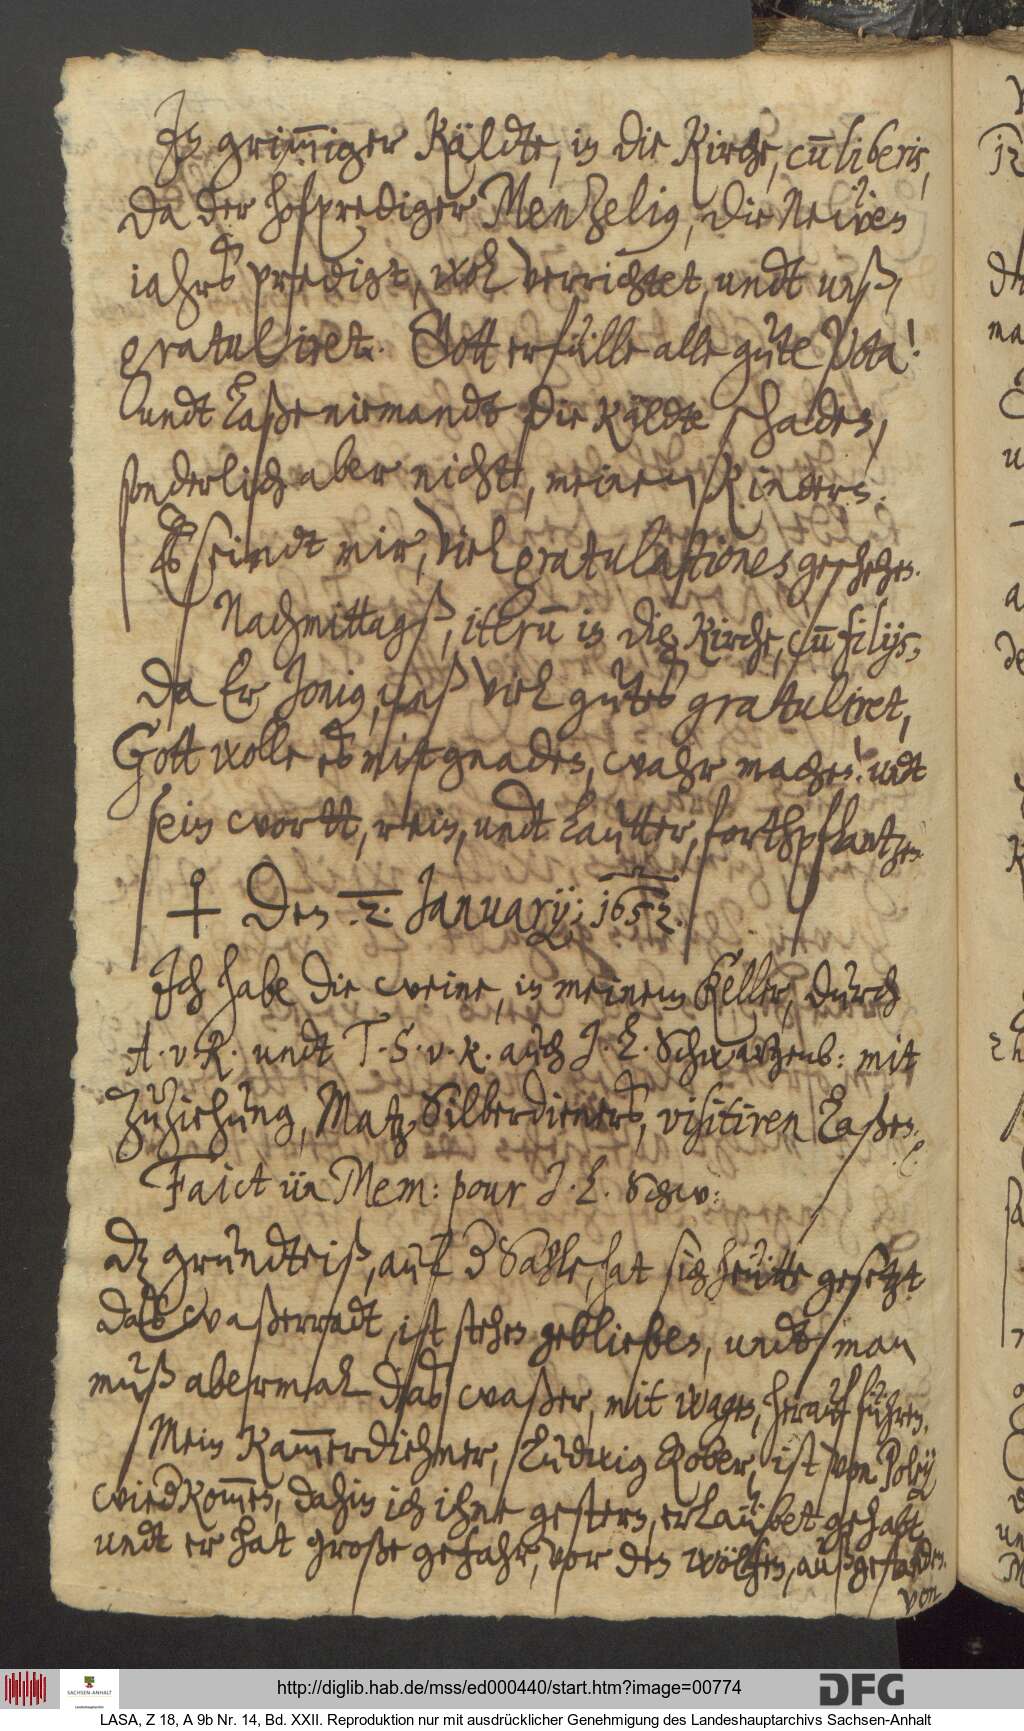 In grim̅iger Käldte, in die Kirche, cu̅ liberis,
da der hofprediger Mentzelig, die Neẅen
iahrs predigt, wol verrichtet, undt unß,
gratuliret. Gott erfülle alle gute Vota!
undt laße niemandts die Käldte schaden,
sonderlich aber nicht, meinen Kindern.
Es seindt mir, viel gratulationes geschehen.
Nachmittagß, iteru̅ in die Kirche, cu̅ filijs,
da Er Jonig, unß viel gutes gratuliret,
Gott wolle es mit gnaden, wahr machen! undt
sein wortt, rein, undt lautter, forthpflantzen.
Den 2. January; 1652.
Ich habe die weine, in meinem Keller, durch
A. v. R. undt T. S. v. K. auch J. L. Schwartzenb: mit
Zuziehung, Matz Silberdieners, visitiren laßen.
Faict un Mem: pour J. L. Schw:
dz grundteiß, auf der Sahle, hat sich heutte gesetzt
das waßerradt, ist stehen geblieben, undt man
muß abermal das waßer, mit wagen, herauf führen.
Mein Kam̅erdiehner, Ludwig Rober, ist von Poley
wieder kom̅en, dahin ich ihne gestern, erlaubet gehabt,
undt er hat große gefahr, vor den wölfen, außgestanden.
von
http://diglib.hab.de/mss/ed000440/start.htm?image=00774
SACHSEN-ANHALT
DFG
LASA, Z 18, A 9b Nr. 14, Bd. XXII. Reproduktion nur mit ausdrücklicher Genehmigung des Landeshauptarchivs Sachsen-Anhalt